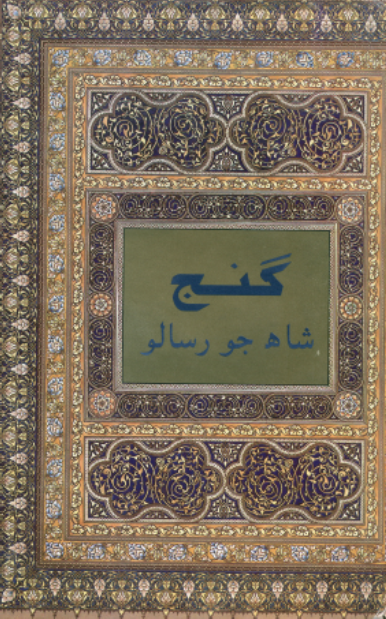 گنج
شاھ جو رسالو